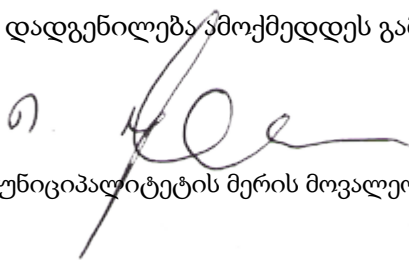 დადგენილება ამოქმედდეს
უნიციპალიტეტის მერის